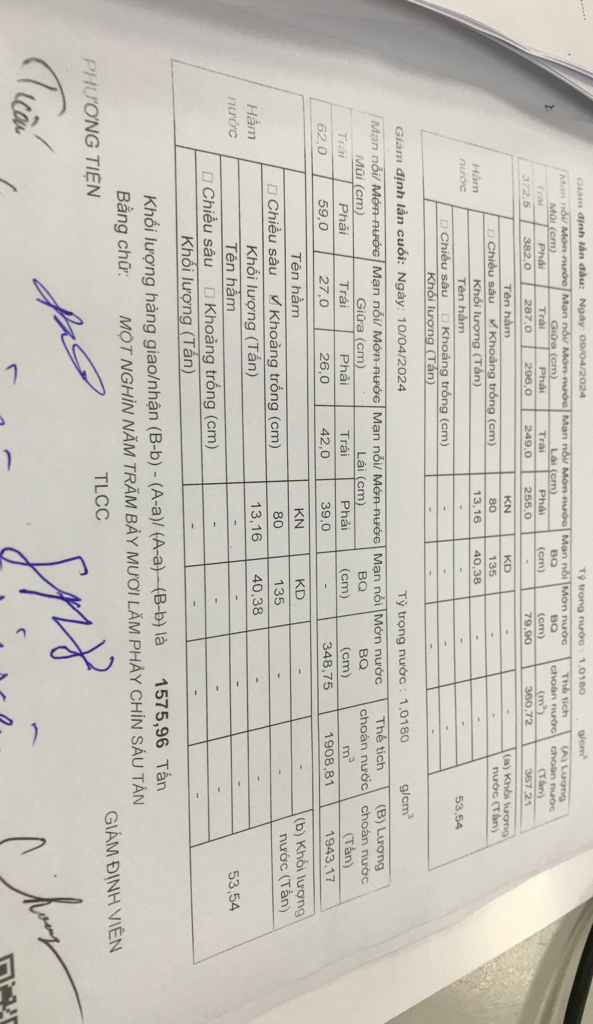 Giám định lần đầu: Ngày: 09/04/2024 Tỷ trọng nước : 1,0180 g/cm³
Mạn nổi/ Mớn nước Mũi (cm) Mạn nổi/ Mớn nước Giữa (cm) Mạn nổi/ Mớn nước Lái (cm) Mạn nổi BQ (cm) Mớn nước BQ (cm) Thể tích choán nước (m³) (A) Lượng choán nước (Tấn)
Trái Phải Trái Phải Trái Phải
372,5 382,0 287,0 296,0 249,0 255,0 - 79,90 360,72 367,21
Hầm nước
Tên hầm KN KD - - (a) Khối lượng nước (Tấn)
□ Chiều sâu ✓ Khoảng trống (cm) 80 135 - -
Khối lượng (Tấn) 13,16 40,38 - - 53,54
Tên hầm - - - -
□ Chiều sâu □ Khoảng trống (cm) - - - -
Khối lượng (Tấn) - - - -
Giám định lần cuối: Ngày: 10/04/2024 Tỷ trọng nước : 1,0180 g/cm³
Mạn nổi/ Mớn nước Mũi (cm) Mạn nổi/ Mớn nước Giữa (cm) Mạn nổi/ Mớn nước Lái (cm) Mạn nổi BQ (cm) Mớn nước BQ (cm) Thể tích choán nước m³ (B) Lượng choán nước (Tấn)
Trái Phải Trái Phải Trái Phải
62,0 59,0 27,0 26,0 42,0 39,0 - 348,75 1908,81 1943,17
Hầm nước
Tên hầm KN KD - - (b) Khối lượng nước (Tấn)
□ Chiều sâu ✓ Khoảng trống (cm) 80 135 - -
Khối lượng (Tấn) 13,16 40,38 - - 53,54
Tên hầm - - - -
□ Chiều sâu □ Khoảng trống (cm) - - - -
Khối lượng (Tấn) - - - -
Khối lượng hàng giao/nhận (B-b) - (A-a)/ (A-a) - (B-b) là 1575,96 Tấn
Bằng chữ: MỘT NGHÌN NĂM TRĂM BẢY MƯƠI LĂM PHẨY CHÍN SÁU TẤN
PHƯƠNG TIỆN TLCC GIÁM ĐỊNH VIÊN